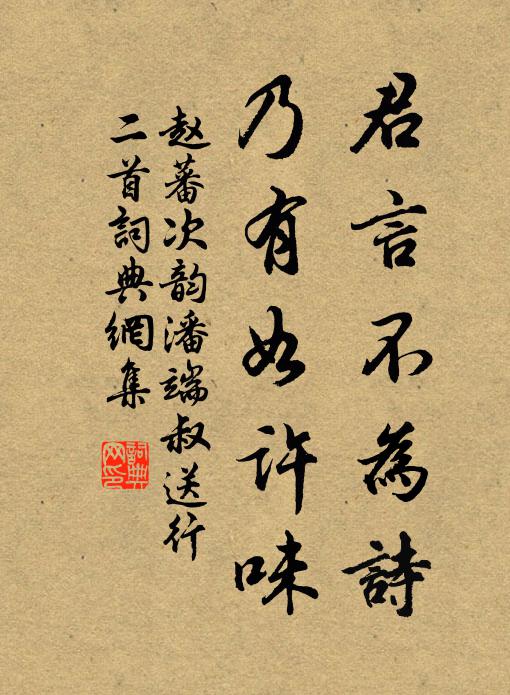 君言不為詩
乃有如許味
赵蕃次韵潘端叔送行
二首詞典網集
詞典
网印